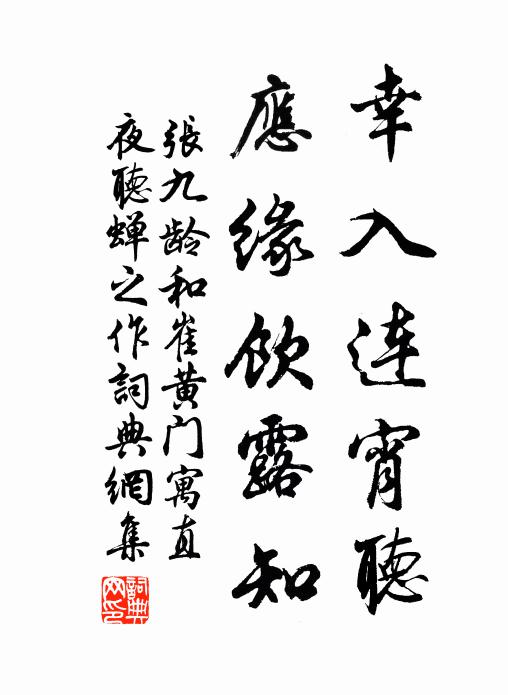 幸入连宵聽
應緣飲露知
張九龄和崔黄门寓直
夜聽蝉之作詞典網集
詞典网印